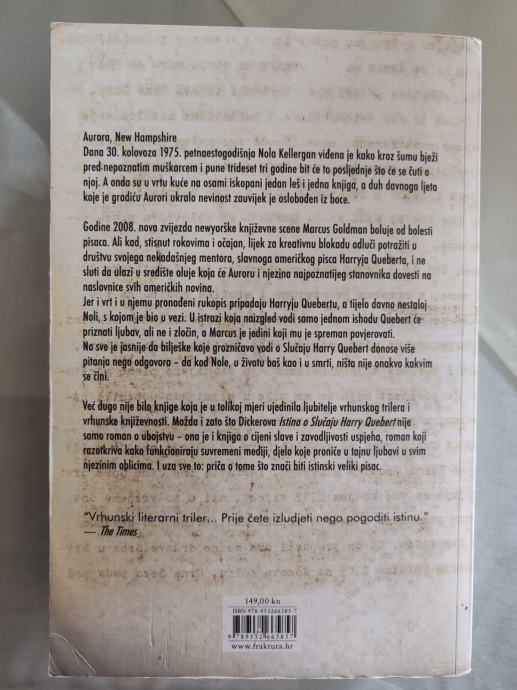 Aurora, New Hampshire
Dana 30. kolovoza 1975. petnaestogodišnja Nola Kellergan viđena je kako kroz šumu bježi
pred nepoznatim muškarcem i pune trideset tri godine bit će to posljednje što će se čuti o
njoj. A onda su u vrtu kuće na osami iskopani jedan leš i jedna knjiga, a duh davnoga ljeta
koje je gradiću Aurori ukralo nevinost zauvijek je osloboden iz boce.
Godine 2008. nova zvijezda newyorške književne scene Marcus Goldman boluje od bolesti
pisaca. Ali kad, stisnut rokovima i očajan, lijek za kreativnu blokadu odluči potražiti u
društvu svojega nekadašnjeg mentora, slavnoga američkog pisca Harryja Queberta, i ne
sluti da ulazi u središte oluje koja će Auroru i njezina najpoznatijeg stanovnika dovesti na
naslovnice svih američkih novina.
Jer i vrt i u njemu pronađeni rukopis pripadaju Harryju Quebertu, a tijelo davno nestaloj
Noli, s kojom je bio u vezi. U istrazi koja naizgled vodi samo jednom ishodu Quebert će
priznati ljubav, ali ne i zločin, a Marcus je jedini koji mu je spreman povjerovati.
No sve je jasnije da bilješke koje grozničavo vodi o Slučaju Harry Quebert donose više
pitanja nego odgovora – da kod Nole, u životu baš kao i u smrti, ništa nije onakvo kakvim
se čini.
Već dugo nije bilo knjige koja je u tolikoj mjeri ujedinila ljubitelje vrhunskog trilera i
vrhunske književnosti. Možda i zato što Dickerova Istina o Slučaju Harry Quebert nije
samo roman o ubojstvu – ona je i knjiga o cijeni slave i zavodljivosti uspjeha, roman koji
razotkriva kako funkcioniraju suvremeni mediji, djelo koje proniče u tajnu ljubavi u svim
njezinim oblicima. I uza sve to: priča o tome što znači biti istinski veliki pisac.
“Vrhunski literarni triler... Prije ćete izludjeti nego pogoditi istinu.”
— The Times
149,00 kn
ISBN 978-953266585-7
9 789532 665857
www.fraktura.hr